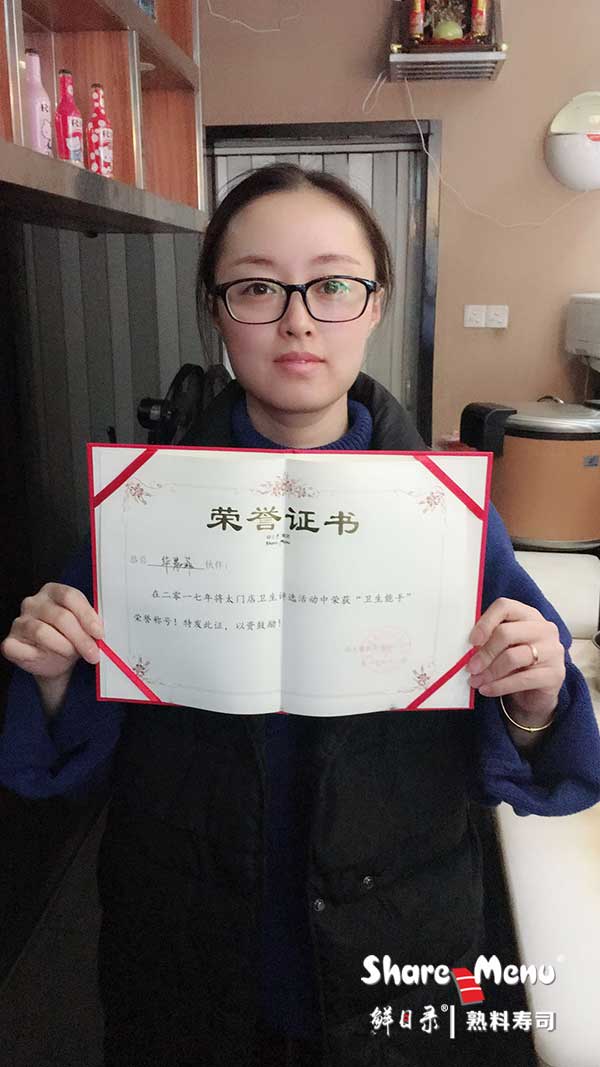 荣誉证书
鲜目录
Share Menu
伙伴:
在二零一七年将太门店卫生评选活动中荣获“卫生能手”
荣誉称号!特发此证,以资鼓励!
Share Menu®
鲜目录®|熟料寿司